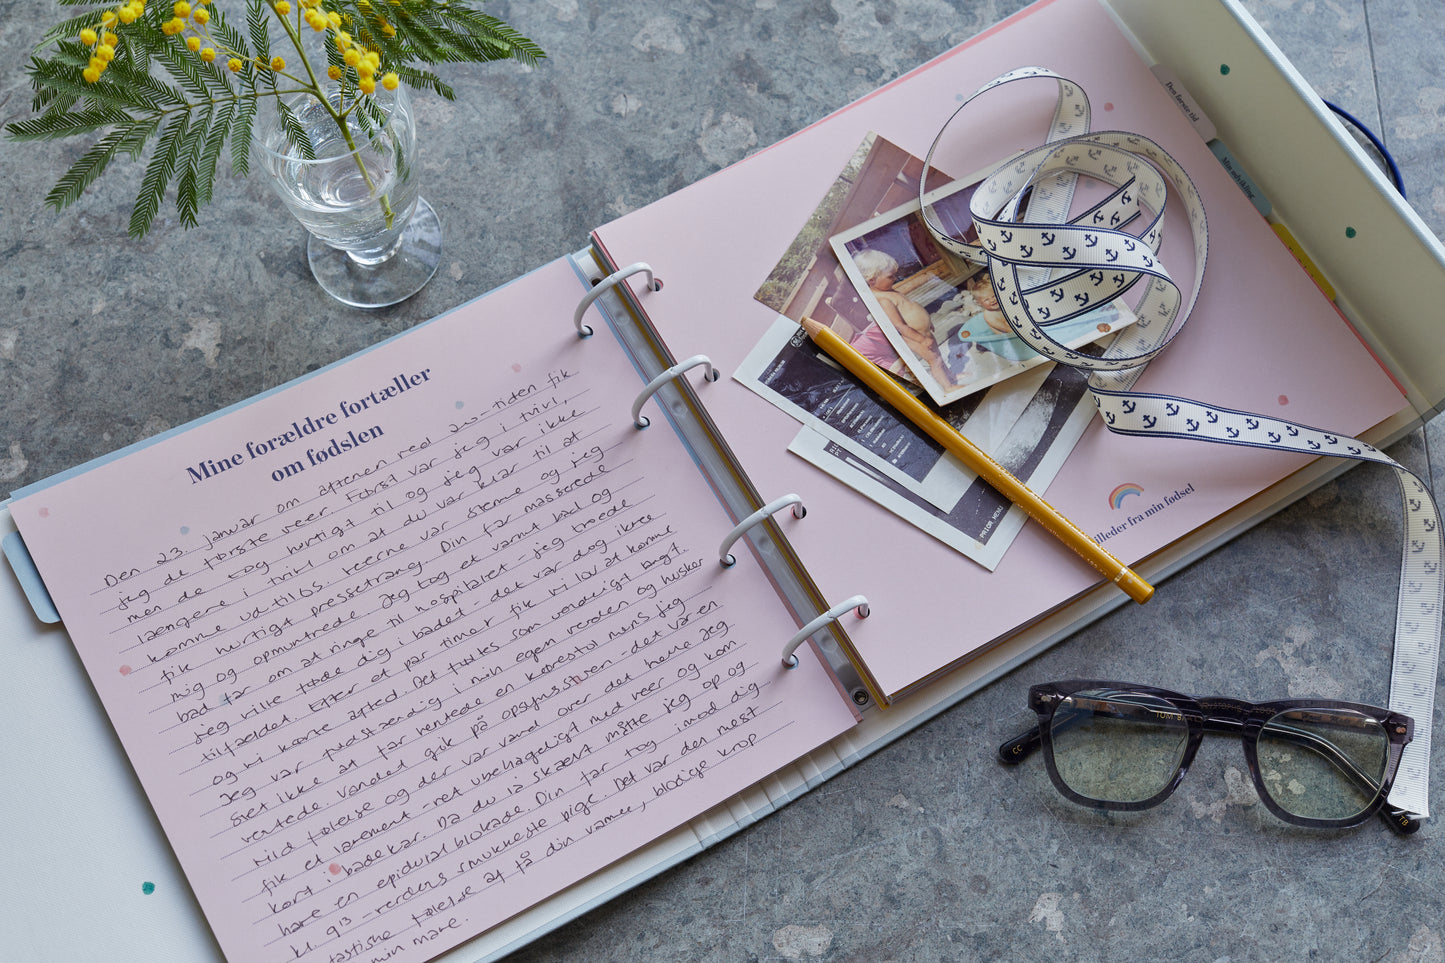 Mine forældre fortæller
om fødslen
Den 23. januar om aftenen ved 20-tiden fik
jeg de første veer. Først var jeg i tvivl,
men de tog hurtigt til og jeg var ikke
længere i tvivl om at du var klar til at
komme ud til os. Veerne var stærke og jeg
fik hurtigt pressetrang. Din far masserede
mig og opmuntrede. Jeg tog et varmt bad og
bad far om at ringe til hospitalet - jeg troede
jeg ville føde dig i badet - det var dog ikke
tilfældet. Efter et par timer fik vi lov at komme
og vi kørte afsted. Det føltes som uendeligt langt.
Jeg var fuldstændig i min egen verden og husker
slet ikke at far hentede en kørestol mens jeg
ventede. Vandet gik på opsynsstuen - det var en
vild følelse og der var vand over det hele. Jeg
fik et lavement - ret ubehageligt med veer og kom
kort i badekar. Da du lå skævt måtte jeg op og
have en epidural blokade. Din far tog imod dig
kl. 913 - verdens smukkeste pige. Det var den mest
fantastiske følelse at få din varme, blodige krop
min mave.
Billeder fra min fødsel
Den første tid
Min udvikling
PRIOR MENU
TOM
CC
TB